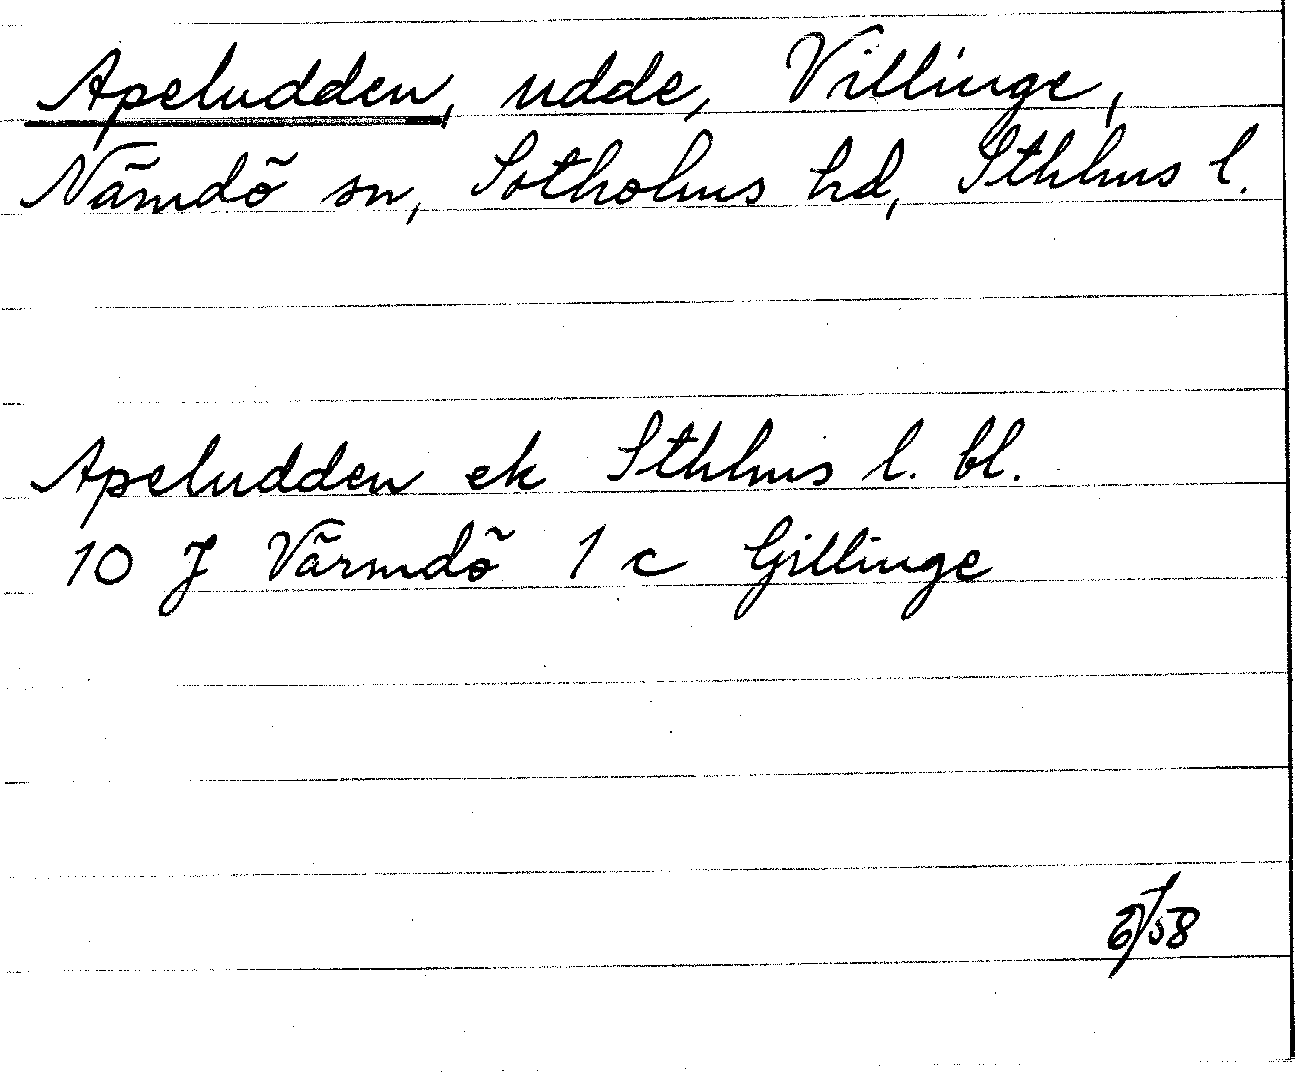 Apeludden, udde, Villinge,
Nämdö sn, Sotholms hd, Sthlms l.
Apeludden ek Sthlms l. bl.
10 J Värmdö 1 c Gillinge
58